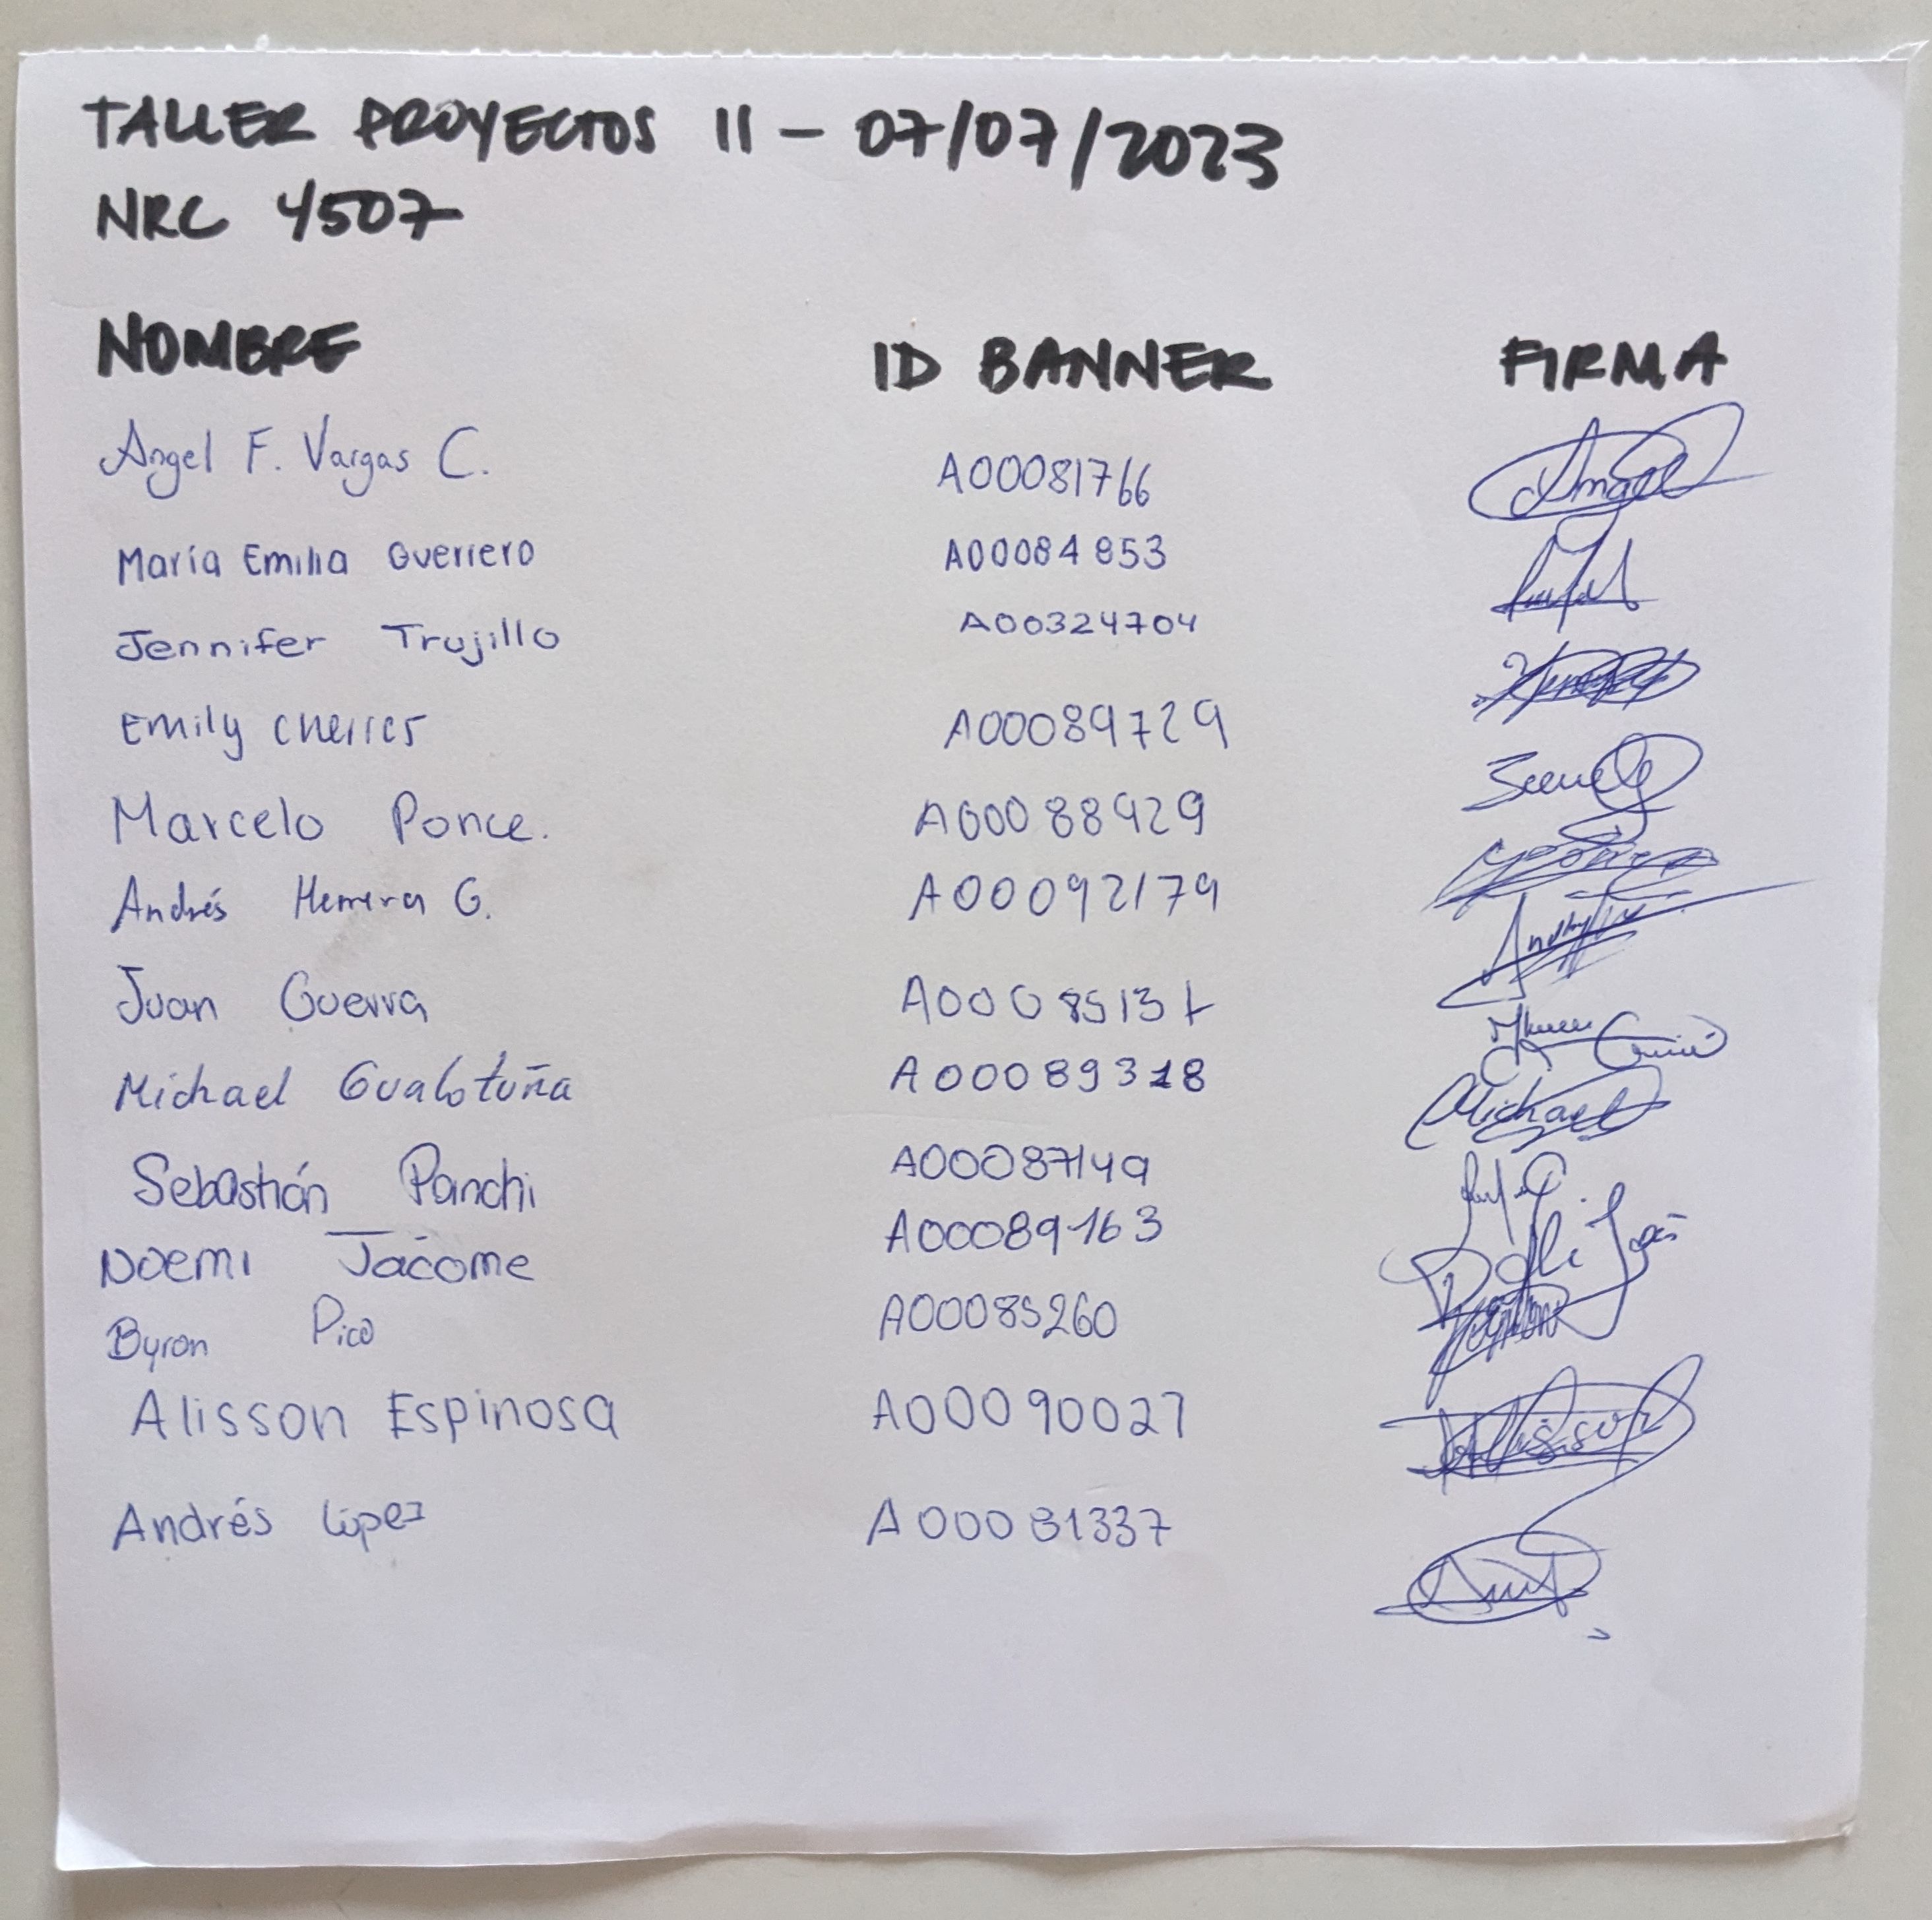 TALLER PROYECTOS II - 07/07/2023
NRC 4507
NOMBRE ID BANNER FIRMA
Angel F. Vargas C. A00081766
María Emilia Guerrero A00084853
Jennifer Trujillo A00324704
Emily Cherres A00089729
Marcelo Ponce. A00088929
Andrés Herrera G. A00092179
Juan Guerra
Michael Gualotuña A00089318
Sebastián Panchi A00087149
Noemi Jácome A00089163
Byron Pico A00085260
Alisson Espinosa A00090027
Andrés López A00081337